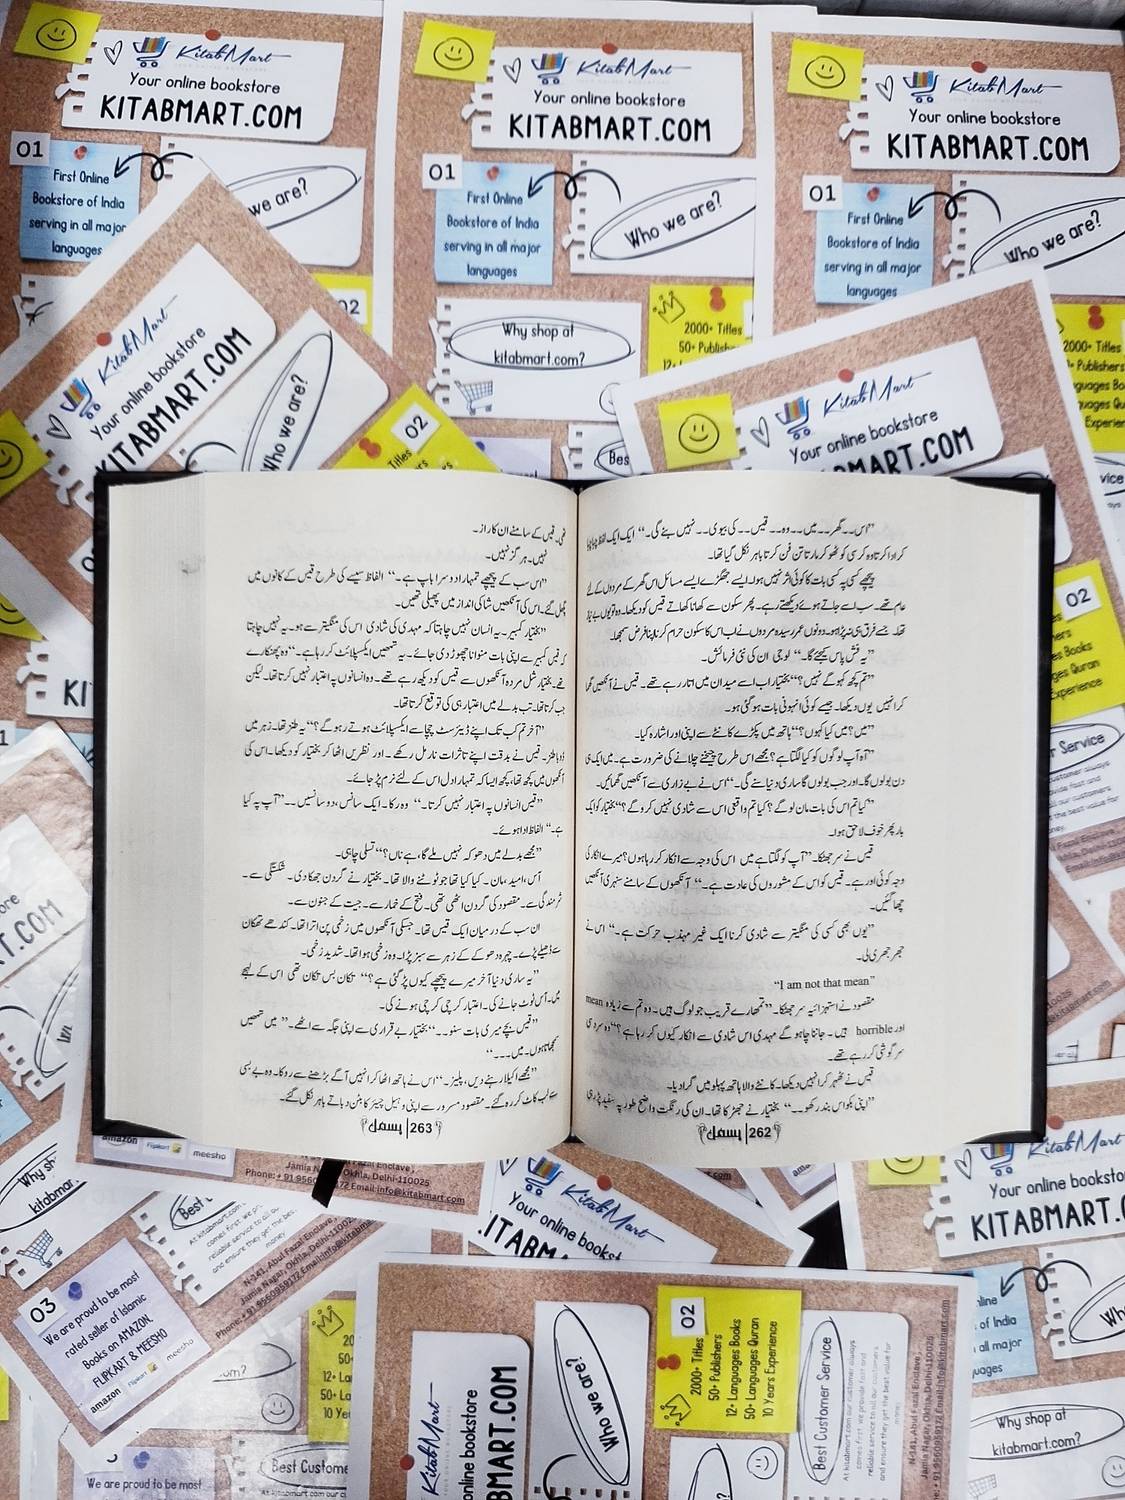 KitabMart
Your online bookstore
KITABMART.COM
01
First Online
Bookstore of India
serving in all major
languages
we are?
02
KitabMart
Your online bookstore
KITABMART.COM
01
First Online
Bookstore of India
serving in all major
languages
Who we are?
Why shop at
kitabmart.com?
2000+ Titles
KitabMart
Your online bookstore
KITABMART.COM
01
First Online
Bookstore of India
serving in all major
languages
Who we are?
2000+ Titles
KitabMart
Your online bookstore
KITABMART.COM
Who we are?
02
KitabMart
Your online bookstore
02
"اس۔۔گھر۔۔میں۔۔وہ۔۔قیس۔۔کی بیوی۔۔نہیں بنے گی۔" ایک ایک لفظ
کر ادا کرتا وہ کرسی کو ٹھوکر مارتا تن فن کرتا باہر نکل گیا تھا۔
پیچھے کسی پہ کسی بات کا کوئی اثر نہیں ہوا۔ ایسے جھگڑے ایسے مسائل اس گھر کے مردوں کے لیے
عام تھے۔ سب اسے جاتے ہوئے دیکھتے رہے۔ پھر سکون سے کھانا کھاتے قیس کو دیکھا۔
تھا۔ جسے فرق ہی نہ پڑا ہو۔ دونوں عمر رسیدہ مردوں نے اب اس کا سکون حرام کرنا اپنا فرض سمجھا۔
"یہ فش پاس کیجئے گا۔" لو جی ان کی نئی فرمائش۔
"تم کچھ کہو گے نہیں؟" بختیار اب اسے میدان میں اتار رہے تھے۔ قیس نے آنکھیں
کر انہیں یوں دیکھا۔ جیسے کوئی انہونی بات ہو گئی ہو۔
"میں؟ میں کیا کہوں؟" ہاتھ میں پکڑے کانٹے سے اپنی اور اشارہ کیا۔
"آہ آپ لوگوں کو کیا لگتا ہے؟ مجھے اس طرح چیخنے چلانے کی ضرورت ہے۔ میں ایک ہی
دن بولوں گا۔ اور جب بولوں گا ساری دنیا سنے گی۔" اس نے بے زاری سے آنکھیں گھمائیں۔
"کیا تم اس کی بات مان لو گے؟ کیا تم واقعی اس سے شادی نہیں کرو گے؟" بختیار کو ایک
بار پھر خوف لاحق ہوا۔
قیس نے سر جھٹکا۔ "آپ کو لگتا ہے میں اس کی وجہ سے انکار کر رہا ہوں؟ میرے انکار کی
وجہ کوئی اور ہے۔ قیس کو اس کے مشوروں کی عادت ہے۔" آنکھوں کے سامنے سنہری آنکھیں
چھا گئیں۔
"یوں بھی کسی کی منگیتر سے شادی کرنا ایک غیر مہذب حرکت ہے۔" اس نے
جھرجھری لی۔
"I am not that mean"
مقصود نے استہزائیہ سر جھٹکا۔ "تمہارے قریب جو لوگ ہیں۔ وہ تم سے زیادہ mean
اور horrible ہیں۔ جاننا چاہو گے مہدی اس شادی سے انکار کیوں کر رہا ہے؟" وہ سرد سی
سرگوشی کر رہے تھے۔
قیس نے ٹھہر کر انہیں دیکھا۔ کانٹے والا ہاتھ پہلو میں گرا دیا۔
"اپنی بکواس بند رکھو۔۔" بختیار نے جھڑکا تھا۔ ان کی رنگت واضح طور پہ سفید پڑ رہی
بسمل | 262
تھی۔ قیس کے سامنے ان کا راز۔
نہیں۔ ہرگز نہیں۔
"اس سب کے پیچھے تمہارا دوسرا باپ ہے۔" الفاظ سیسے کی طرح قیس کے کانوں میں
گھل گئے۔ اس کی آنکھیں شاکی انداز میں پھیلی تھیں۔
"بختیار کمبیر۔ یہ انسان نہیں چاہتا کہ مہدی کی شادی اس کی منگیتر سے ہو۔ یہ نہیں چاہتا
کہ قیس کمبیر سے اپنی بات منوانا چھوڑ دی جائے۔ یہ تمہیں ایکسپلائٹ کر رہا ہے۔" وہ پھنکارے
تھے۔ بختیار شل مردہ آنکھوں سے قیس کو دیکھ رہے تھے۔ وہ انسانوں پہ اعتبار نہیں کرتا تھا۔ لیکن
جب کرتا تھا۔ تب بدلے میں اعتبار ہی کی توقع کرتا تھا۔
"آخر تم کب تک اپنے ڈیئرسٹ چچا سے ایکسپلائٹ ہوتے رہو گے؟" یہ طنز تھا۔ زہر میں
ڈوبا طنز۔ قیس نے بدقت اپنے تاثرات نارمل رکھے۔ اور نظریں اٹھا کر بختیار کو دیکھا۔ اس کی
آنکھوں میں کچھ تھا، کچھ ایسا کہ تمہارا دل اس کے لئے نرم پڑ جائے۔
"قیس انسانوں پہ اعتبار نہیں کرتا۔" وہ رکا۔ ایک سانس، دو سانسیں۔۔ "آپ پہ کیا
ہے۔" الفاظ ادا ہوئے۔
"مجھے بدلے میں دھوکہ نہیں ملے گا، ہے ناں؟" تسلی چاہی۔
آس، امید، مان۔ کیا کیا تھا جو ٹوٹنے والا تھا۔ بختیار نے گردن جھکا دی۔ شکستگی سے۔
شرمندگی سے۔ مقصود کی گردن اٹھی تھی۔ فتح کے خمار سے۔ جیت کے جنون سے۔
ان سب کے درمیان ایک قیس تھا۔ جسکی آنکھوں میں زخمی پن اترا تھا۔ کندھے تھکان
سے ڈھیلے پڑے۔ چہرہ دھوکے کے زہر سے سبز پڑا۔ وہ زخمی ہوا تھا۔ شدید زخمی۔
"یہ ساری دنیا آخر میرے پیچھے کیوں پڑ گئی ہے؟" تکان بس تکان تھی اس کے لہجے
میں۔ آس ٹوٹ جانے کی۔ اعتبار کرچی کرچی ہونے کی۔
"قیس بچے میری بات سنو۔۔" بختیار بے قراری سے اپنی جگہ سے اٹھے۔ "میں تمہیں
سمجھاتا ہوں۔ میں۔۔۔"
"مجھے اکیلا رہنے دیں، پلیز۔" اس نے ہاتھ اٹھا کر انہیں آگے بڑھنے سے روکا۔ وہ بے بسی
سے لب کاٹ کر رہ گئے۔ مقصود مسرور سے اپنی وہیل چیئر کا بٹن دباتے باہر نکل گئے۔
بسمل | 263
amazon Flipkart meesho
Jamia Nagar, Okhla, Delhi-110025
Phone: +91 9560959172 Email:info@kitabmart.com
03
We are proud to be most
rated seller of Islamic
Books on AMAZON,
FLIPKART & MEESHO
amazon Flipkart meesho
N-141, Abul Fazal Enclave,
Jamia Nagar, Okhla, Delhi-110025
KitabMart
Your online
KitabMart
KITABMART.C
Why shop at
kitabmart.com?
Who we are?
02
2000+ Titles
50+ Publishers
12+ Languages Books
50+ Languages Quran
10 Years Experience
Best Customer Service
At kitabmart.com our customer always
comes first. We provide fast and
reliable service to all our customers
and ensure they get the best value for
money.
We are proud to be most